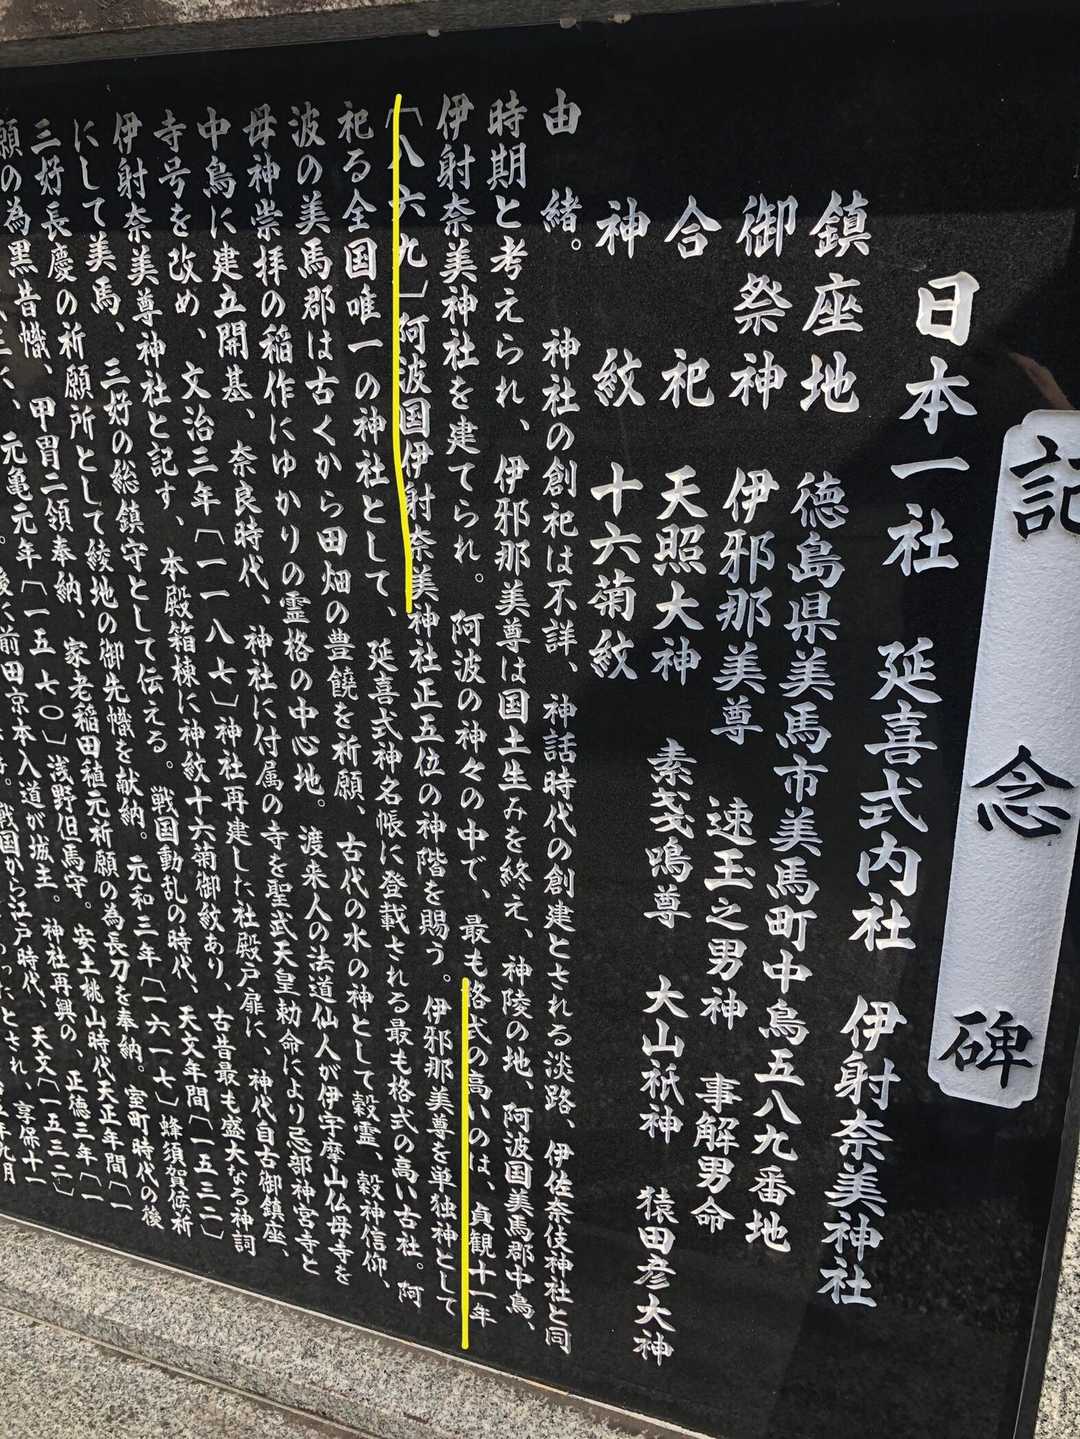 記念碑
日本一社 延喜式内社 伊射奈美神社
鎮座地 徳島県美馬市美馬町中鳥五八九番地
御祭神 伊邪那美尊 速玉之男神 事解男命
合祀 天照大神 素戔鳴尊 大山祇神 猿田彦大神
神紋 十六菊紋
由緒。 神社の創祀は不詳、神話時代の創建とされる淡路、伊佐奈伎神社と同
時期と考えられ、伊邪那美尊は国土生みを終え、神陵の地、阿波国美馬郡中鳥、
伊射奈美神社を建てられ。 阿波の神々の中で、最も格式の高いのは、貞観十一年
〔八六九〕阿波国伊射奈美神社正五位の神階を賜う。伊邪那美尊を単独神として
祀る全国唯一の神社として、延喜式神名帳に登載される最も格式の高い古社。阿
波の美馬郡は古くから田畑の豊饒を祈願、古代の水の神として穀霊、穀神信仰、
母神崇拝の稲作にゆかりの霊格の中心地。 渡来人の法道仙人が伊宇摩山仏母寺を
中鳥に建立開基、奈良時代、神社に付属の寺を聖武天皇勅命により忌部神宮寺と
寺号を改め、文治三年〔一一八七〕神社再建した社殿戸扉に、神代自古御鎮座、
伊射奈美尊神社と記す、本殿箱棟に神紋十六菊御紋あり、古昔最も盛大なる神詞
にして美馬、三好の総鎮守として伝える。 戦国動乱の時代、天文年間〔一五三二〕
三好長慶の祈願所として綾地の御先幟を献納。元和三年〔一六一七〕蜂須賀候祈
願の為黒昔幟、甲冑二領奉納、家老稲田稙元祈願の為長刀を奉納。室町時代の後
元亀元年〔一五七〇〕浅野但馬守。安土桃山時代天正年間〔一
前田京本入道が城主。神社再興の、正徳三年〔一
戦国から江戸時代、天文〔一五三二〕
享保十一